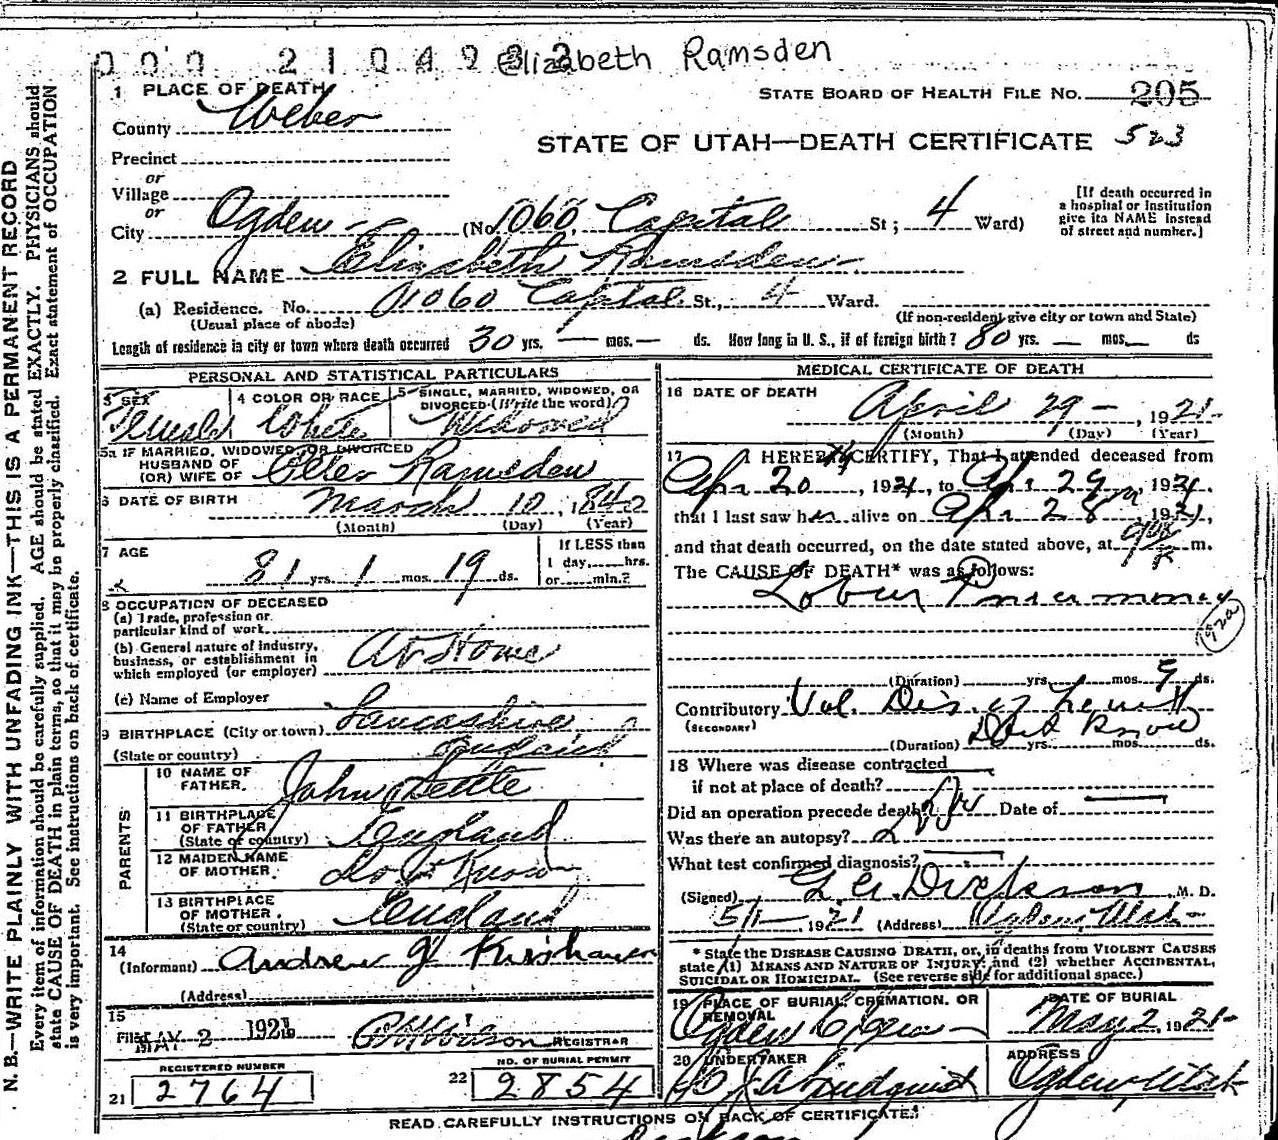 000 210493 2 Elizabeth Ramsden
1 PLACE OF DEATH
STATE BOARD OF HEALTH FILE NO. 205
County Weber
STATE OF UTAH—DEATH CERTIFICATE 523
Precinct
or
Village
or
City Ogden (No. 1060 Capital St; 4 Ward)
[If death occurred in a hospital or institution give its NAME instead of street and number.]
2 FULL NAME Elizabeth Ramsden
(a) Residence. No. 1060 Capital St., 4 Ward.
(Usual place of abode) (If non-resident give city or town and State)
Length of residence in city or town where death occurred 30 yrs. — mos. — ds. How long in U. S., if of foreign birth? 80 yrs. — mos. — ds
PERSONAL AND STATISTICAL PARTICULARS
3 SEX Female
4 COLOR OR RACE White
5 SINGLE, MARRIED, WIDOWED, OR DIVORCED (Write the word) Widowed
5a IF MARRIED, WIDOWED, OR DIVORCED
HUSBAND OF
(OR) WIFE OF Ramsden
6 DATE OF BIRTH March 10, 1840
(Month) (Day) (Year)
7 AGE 81 yrs. 1 mos. 19 ds.
If LESS than 1 day, hrs. or min.?
8 OCCUPATION OF DECEASED
(a) Trade, profession or particular kind of work
(b) General nature of industry, business, or establishment in which employed (or employer) At Home
(c) Name of Employer
9 BIRTHPLACE (City or town) Lancashire
(State or country) England
PARENTS
10 NAME OF FATHER. John Settle
11 BIRTHPLACE OF FATHER (State or country) England
12 MAIDEN NAME OF MOTHER. Don't Know
13 BIRTHPLACE OF MOTHER. (State or country) England
14
(Informant) Andrew J
(Address)
15
Filed MAY 2 1921 REGISTRAR
REGISTERED NUMBER
21 2764
NO. OF BURIAL PERMIT
22 2854
MEDICAL CERTIFICATE OF DEATH
16 DATE OF DEATH April 29 – , 1921
(Month) (Day) (Year)
17 I HEREBY CERTIFY, That I attended deceased from
Apr 20, 1921, to Apr 29, 1921.
that I last saw her alive on Apr 28, 1921,
and that death occurred, on the date stated above, at m.
The CAUSE OF DEATH* was as follows:
Lobar Pneumonia
(Duration) yrs. mos. 9 ds.
Contributory Val. Dis. of heart
(SECONDARY)
(Duration) Don't Know yrs. mos. ds.
18 Where was disease contracted
if not at place of death?
Did an operation precede death? No Date of
Was there an autopsy?
What test confirmed diagnosis?
(Signed) Dickson, M. D.
5/1 1921 (Address) Ogden, Utah
* State the DISEASE CAUSING DEATH, or, in deaths from VIOLENT CAUSES state (1) MEANS AND NATURE OF INJURY; and (2) whether ACCIDENTAL, SUICIDAL OR HOMICIDAL. (See reverse side for additional space.)
19 PLACE OF BURIAL, CREMATION, OR REMOVAL Ogden
DATE OF BURIAL May 2, 1921
20 UNDERTAKER Lindquist
ADDRESS Ogden, Utah
READ CAREFULLY INSTRUCTIONS ON BACK OF CERTIFICATE.
N. B.—WRITE PLAINLY WITH UNFADING INK—THIS IS A PERMANENT RECORD
Every item of information should be carefully supplied. AGE should be stated EXACTLY. PHYSICIANS should
state CAUSE OF DEATH in plain terms, so that it may be properly classified. Exact statement of OCCUPATION
is very important. See instructions on back of certificate.